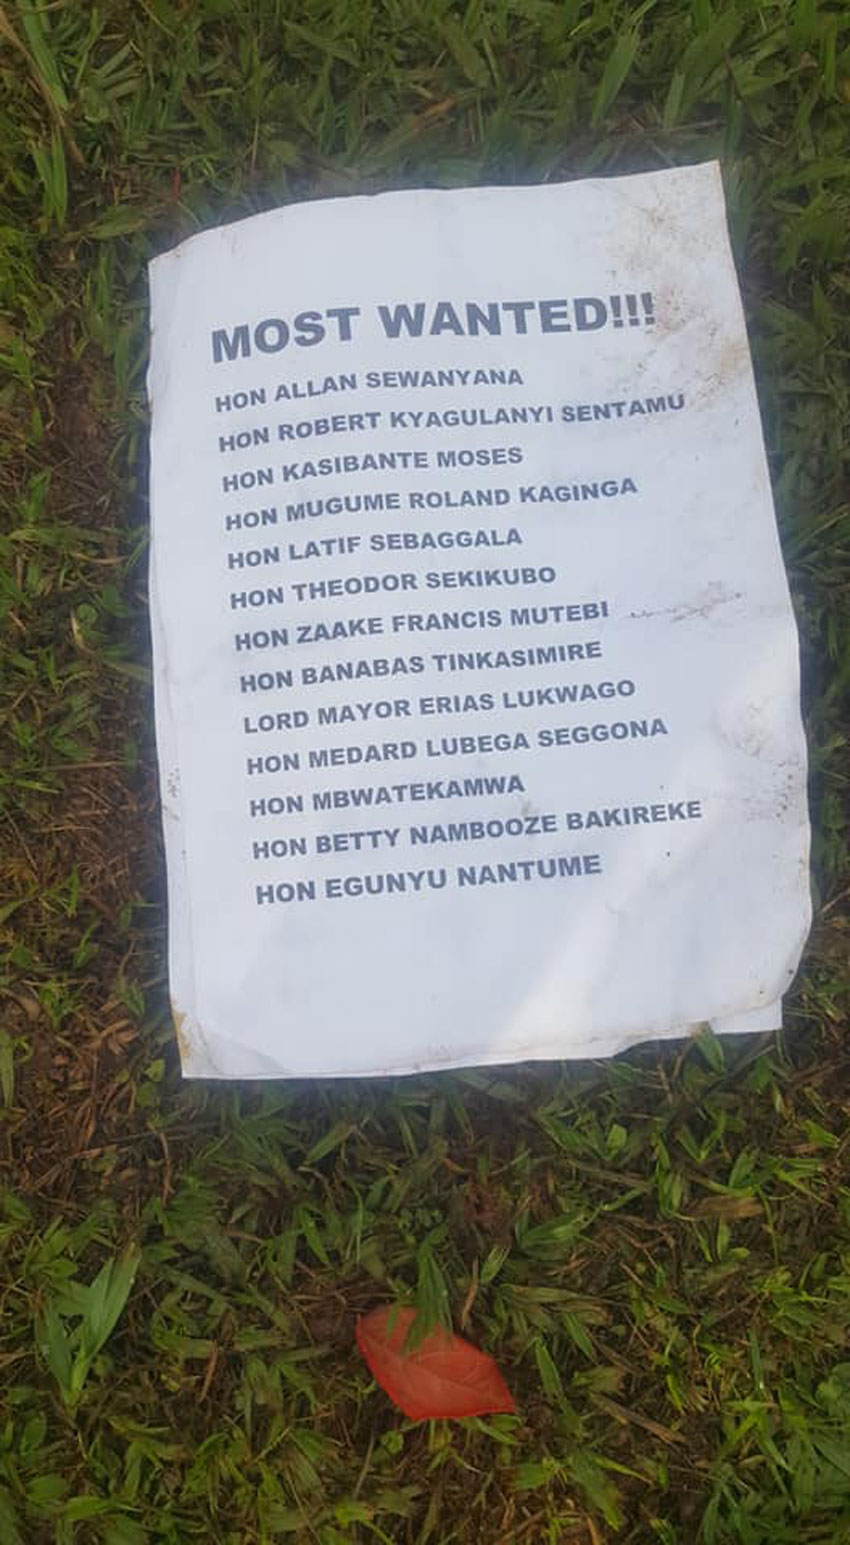 MOST WANTED!!!
HON ALLAN SEWANYANA
HON ROBERT KYAGULANYI SENTAMU
HON KASIBANTE MOSES
HON MUGUME ROLAND KAGINGA
HON LATIF SEBAGGALA
HON THEODOR SEKIKUBO
HON ZAAKE FRANCIS MUTEBI
HON BANABAS TINKASIMIRE
LORD MAYOR ERIAS LUKWAGO
HON MEDARD LUBEGA SEGGONA
HON MBWATEKAMWA
HON BETTY NAMBOOZE BAKIREKE
HON EGUNYU NANTUME